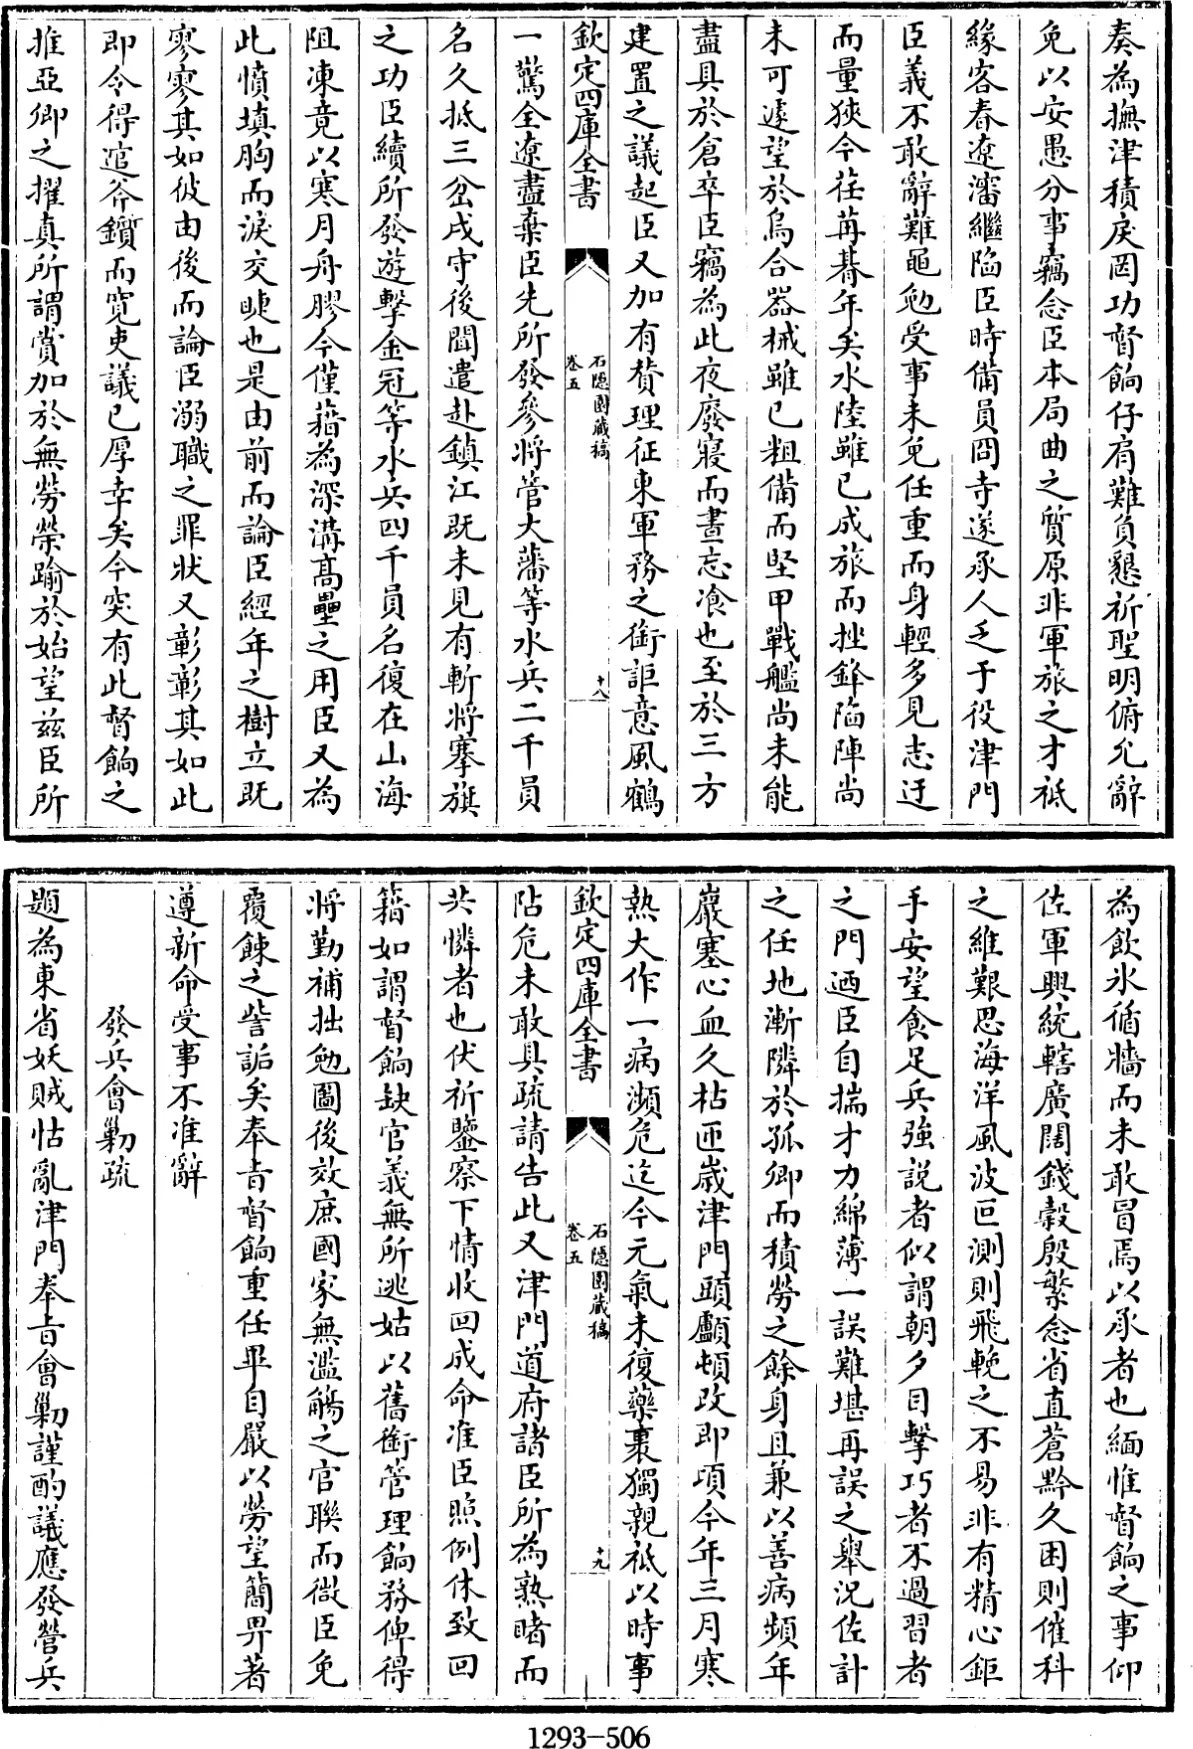 奏為撫津積戾罔功督餉仔肩難負懇祈聖明俯允辭
免以安愚分事竊念臣本局曲之質原非軍旅之才祗
緣客春遼瀋繼陷臣時備員冏寺遂承人乏于役津門
臣義不敢辭難黽勉受事未免任重而身輕多見志迂
而量狹今荏苒朞年矣水陸雖已成旅而挫鋒陷陣尚
未可遽望於烏合器械雖已粗備而堅甲戰艦尚未能
盡具於倉卒臣竊為此夜廢寢而晝忘飡也至於三方
建置之議起臣又加有贊理征東軍務之銜詎意風鶴
欽定四庫全書
石隱園藏稿
卷五
十八
一驚全遼盡棄臣先所發參將管大藩等水兵二千員
名久抵三岔戍守後聞遣赴鎮江既未見有斬將搴旗
之功臣續所發遊擊金冠等水兵四千員名復在山海
阻凍竟以寒月舟膠今僅藉為深溝高壘之用臣又為
此憤填胸而淚交睫也是由前而論臣經年之樹立既
寥寥其如彼由後而論臣溺職之罪狀又彰彰其如此
即令得逭斧鑕而寬吏議已厚幸矣今突有此督餉之
推亞卿之擢真所謂賞加於無勞榮踰於始望茲臣所
為飲氷循牆而未敢冒焉以承者也緬惟督餉之事仰
佐軍興統轄廣闊錢穀殷繁念省直蒼黔久困則催科
之維艱思海洋風波叵測則飛輓之不易非有精心鉅
手安望食足兵強說者似謂朝夕目擊巧者不過習者
之門迺臣自揣才力綿薄一誤難堪再誤之舉況佐計
之任地漸隣於孤卿而積勞之餘身且兼以善病頻年
巖塞心血久枯匝歲津門頭顱頓改即頃今年三月寒
熱大作一病瀕危迄今元氣未復藥裹獨親祗以時事
欽定四庫全書
石隱園藏稿
卷五
十九
阽危未敢具疏請告此又津門道府諸臣所為熟睹而
共憐者也伏祈鑒察下情收回成命准臣照例休致回
籍如謂督餉缺官義無所逃姑以舊銜管理餉務俾得
將勤補拙勉圖後效庶國家無濫觴之官聯而微臣免
覆餗之訾詬矣奉旨督餉重任畢自嚴以勞望簡畀著
遵新命受事不准辭
發兵會勦疏
題為東省妖賊怙亂津門奉旨會勦謹酌議應發營兵
1293-506